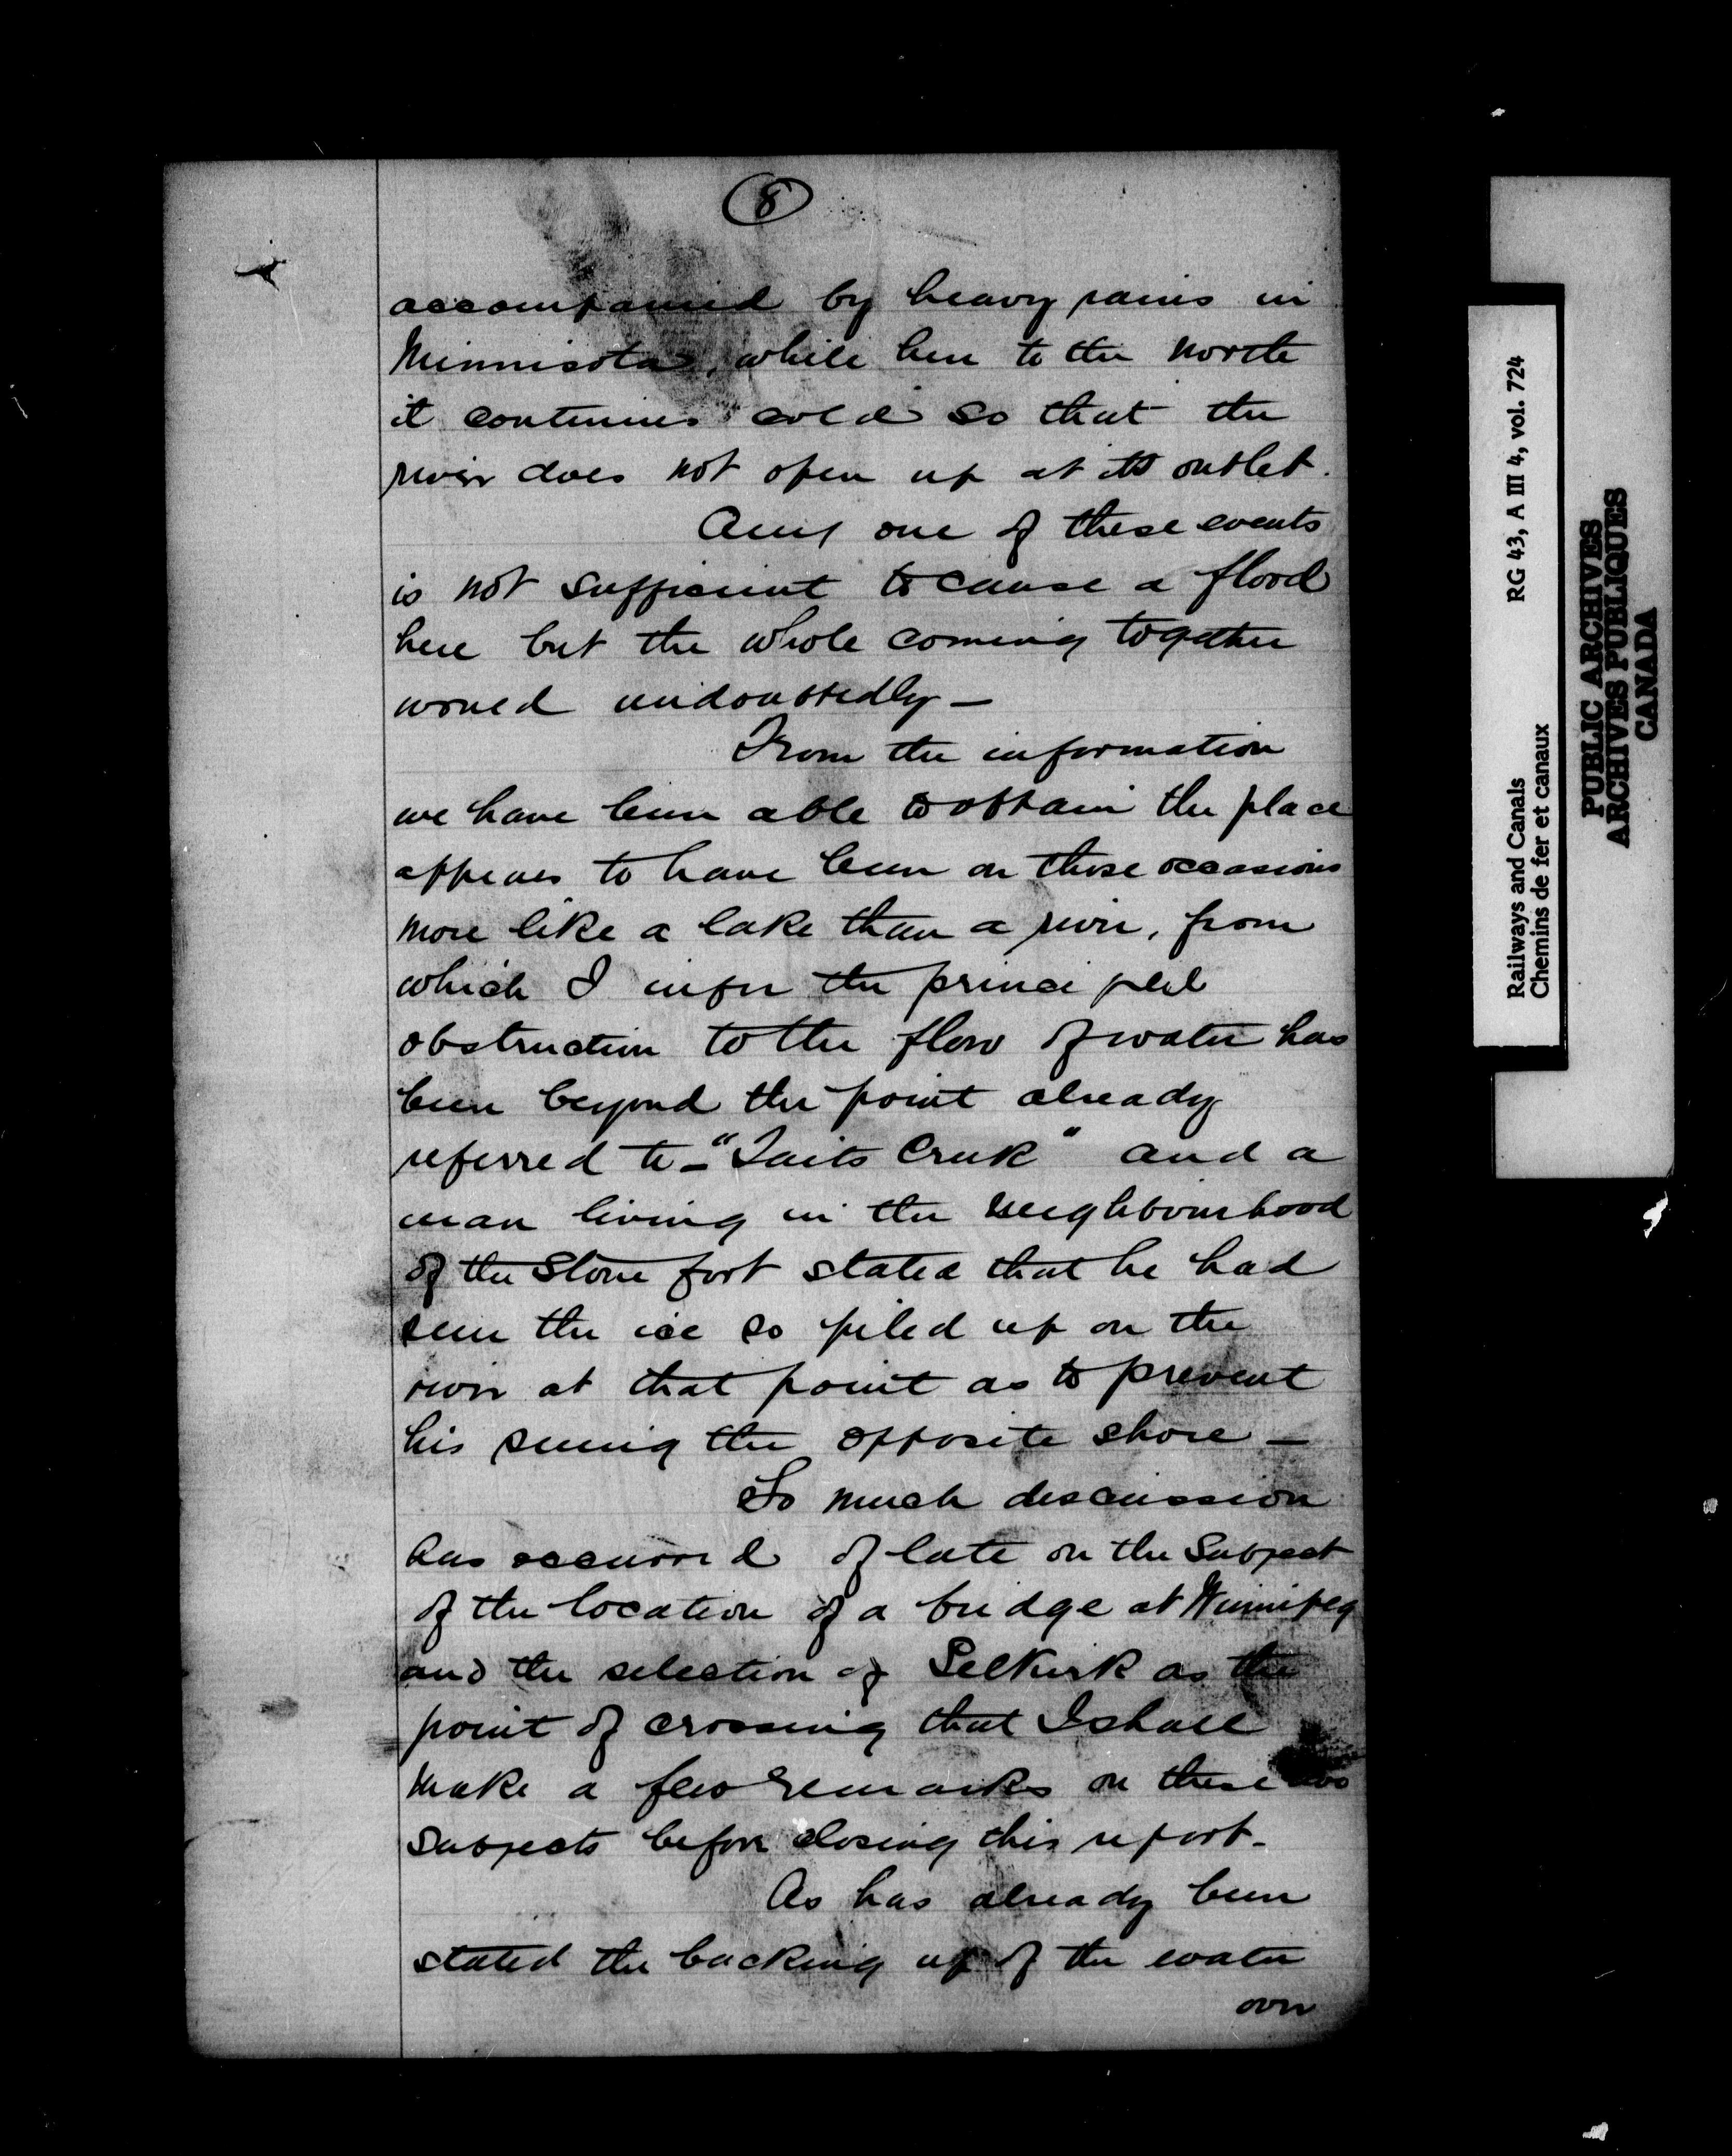 8
accompanied by heavy rains in
Minnisota, while here to the north
it continues cold so that the
river does not open up at its outlet.
Any one of these events
is not sufficient to cause a flood
here but the whole coming together
would undoubtedly —
From the information
we have been able to obtain the place
appears to have been on those occasions
more like a lake than a river, from
which I infer the principal
obstruction to the flow of water has
been beyond the point already
referred to — "Taits Creek" and a
man living in the neighbourhood
of the Stone fort stated that he had
seen the ice so piled up on the
river at that point as to prevent
his seeing the opposite shore —
So much discussion
has occurred of late on the subject
of the location of a bridge at Winnipeg
and the selection of Selkirk as the
point of crossing that I shall
make a few remarks on these two
subjects before closing this report.
As has already been
stated the backing up of the water
over
Railways and Canals RG 43, A III 4, vol. 724
Chemins de fer et canaux
PUBLIC ARCHIVES
ARCHIVES PUBLIQUES
CANADA